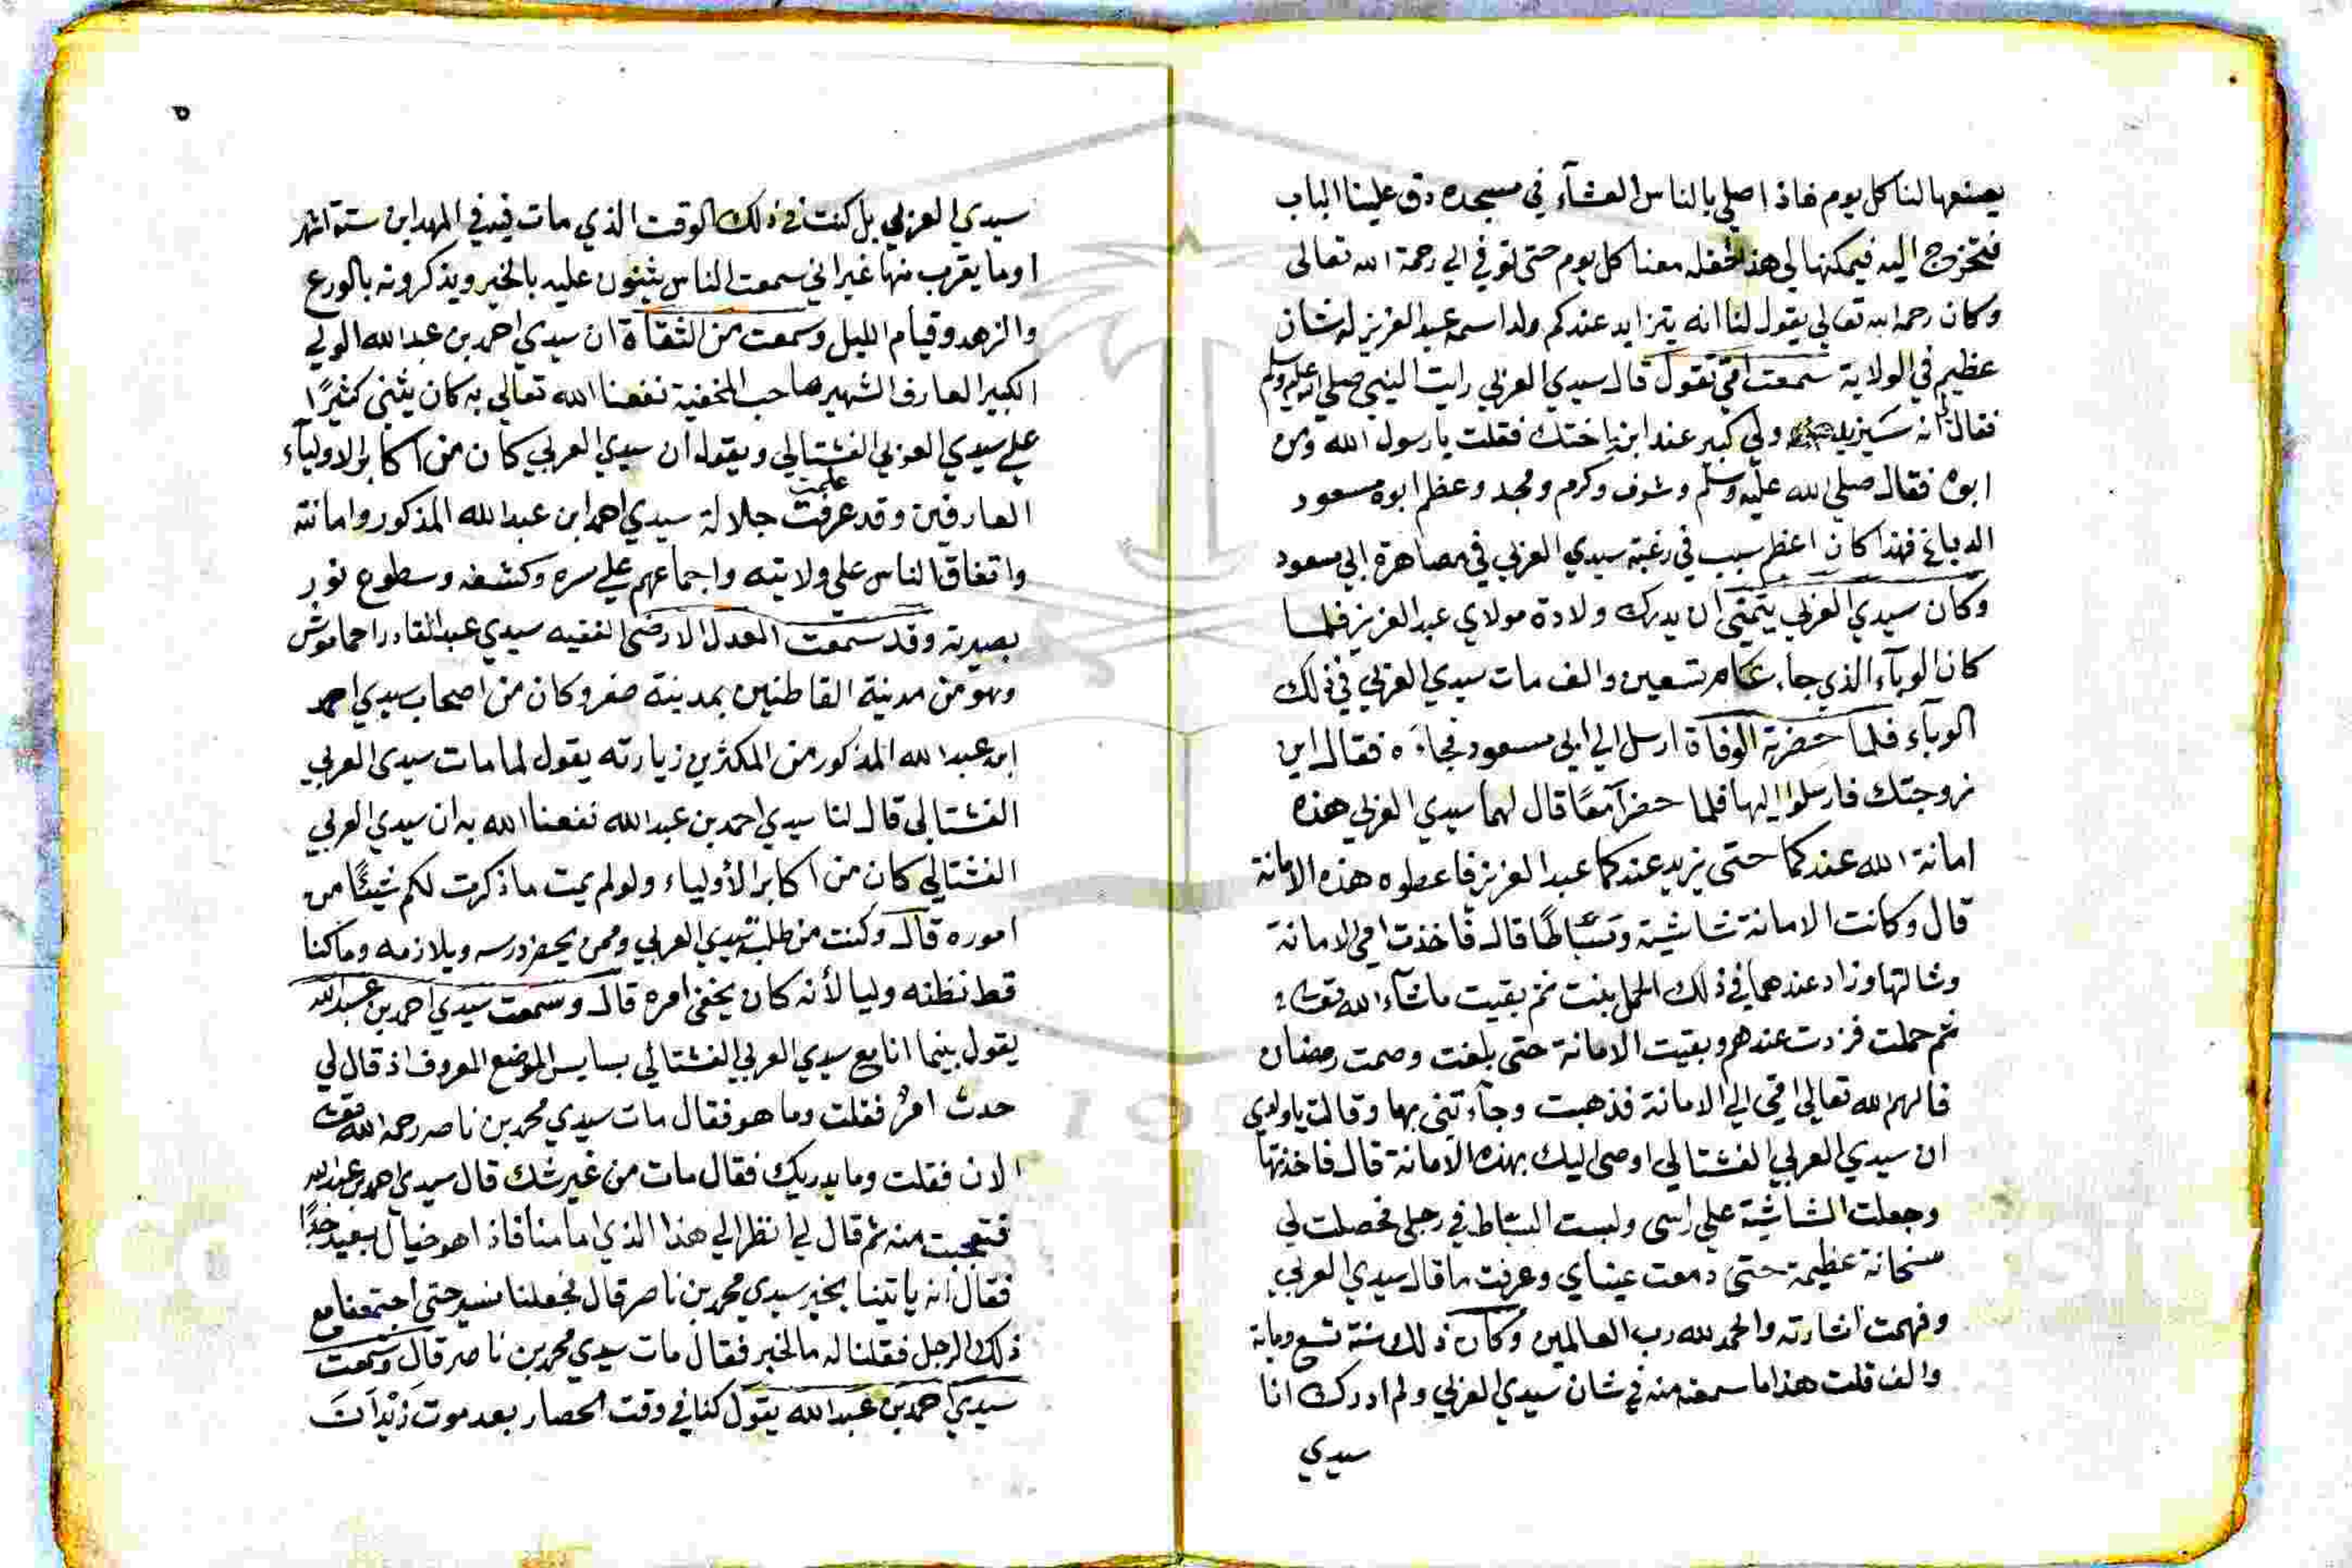 يصنعها لنا كل يوم فاذا صلي بالناس العشآء في مسجده دق علينا الباب
فتخرج اليه فيمكنها لي هذا فعله معنا كل يوم حتى توفي الي رحمة الله تعالى
وكان رحمه الله تعالي يقول لنا انه يتزايد عندكم ولد اسمه عبد العزيز له شان
عظيم في الولاية سمعت امي تقول قال سيدي العربي رايت النبي صلي الله عليه وسلم
فقال انه سيزيد ولي كبير عند ابنة اختك فقلت يا رسول الله ومن
ابوه فقال صلي الله عليه وسلم وشرف وكرم ومجد وعظم ابوه مسعود
الدباغ فهذا كان اعظم سبب في رغبة سيدي العربي في مصاهرة ابي مسعود
وكان سيدي العربي يتمني ان يدرك ولادة مولاي عبد العزيز فلما
كان الوبآء الذي جاء عام تسعين والف مات سيدي العربي في ذلك
الوبآء فلما حضرته الوفاة ارسل الي ابي مسعود فجاءه فقال اين
زوجتك فارسلوا اليها فلما حضرا معًا قال لهما سيدي العربي هذه
امانة الله عندكما حتى يزيد عندكما عبد العزيز فاعطوه هذه الامانة
قال وكانت الامانة شاشية وسباطًا قال فاخذت امي الامانة
وشالتها وزاد عندهما في ذلك الحمل بنت ثم بقيت ماشآء الله
ثم حملت فزدت عندهم وبقيت الامانة حتى بلغت وصمت رمضان
فالهم الله تعالي امي الي الامانة فذهبت وجآءتني بها وقالت يا ولدي
ان سيدي العربي الفشتالي اوصي اليك بهذه الامانة قال فاخذتها
وجعلت الشاشية علي راسي ولبست السباط في رجلي فحصلت لي
سخانة عظيمة حتى دمعت عيناي وعرفت ما قال سيدي العربي
وفهمت اشارته والحمد لله رب العالمين وكان ذلك سنة تسع ومائة
والف قلت هذا ما سمعته منه في شان سيدي العربي ولم ادرك انا
سيدي
٥
سيدي العربي بل كنت في ذلك الوقت الذي مات فيه في المهد ابن ستة اشهر
او ما يقرب منها غير اني سمعت الناس يثنون عليه بالخير ويذكرونه بالورع
والزهد وقيام الليل وسمعت من الثقاة ان سيدي احمد بن عبد الله الولي
الكبير العارف الشهير صاحب المخفية نفعنا الله تعالي به كان يثني كثيرًا
علي سيدي العربي الفشتالي ويقول ان سيدي العربي كان من اكابر الاوليآء
العارفين وقد عرفت علمت جلالة سيدي احمد ابن عبد الله المذكور وامانته
واتفاق الناس علي ولايته واجماعهم علي سره وكشفه وسطوع نور
بصيرته وقد سمعت العدل الارضي الفقيه سيدي عبد القادر احماموش
وهو من مدينة القاطنين بمدينة صفرو كان من اصحاب سيدي احمد
ابن عبد الله المذكور من المكثرين زيارته يقول لما مات سيدي العربي
الفشتالي قال لنا سيدي احمد بن عبد الله نفعنا الله به ان سيدي العربي
الفشتالي كان من اكابر الأولياء ولو لم يمت ما ذكرت لكم شيئًا من
اموره قال وكنت من طلبة سيدي العربي وممن يحضر درسه ويلازمه وما كنا
قط نظنه وليا لأنه كان يخفي امره قال وسمعت سيدي احمد بن عبد الله
يقول بينما انا مع سيدي العربي الفشتالي بسايس الموضع المعروف اذ قال لي
حدث امرٌ فقلت وما هو فقال مات سيدي محمد بن ناصر رحمه الله
الان فقلت وما يدريك فقال مات من غير شك قال سيدي احمد بن عبد الله
فتعجبت منه ثم قال لي انظر الي هذا الذي امامنا فاذا هو خيال بعيد جدًا
فقال انه ياتينا بخير سيدي محمد بن ناصر قال فجعلنا نسير حتى اجتمعنا مع
ذلك الرجل فقلنا له ما الخبر فقال مات سيدي محمد بن ناصر قال وسمعت
سيدي احمد بن عبد الله يقول كنا في وقت الحصار بعد موت زيدان